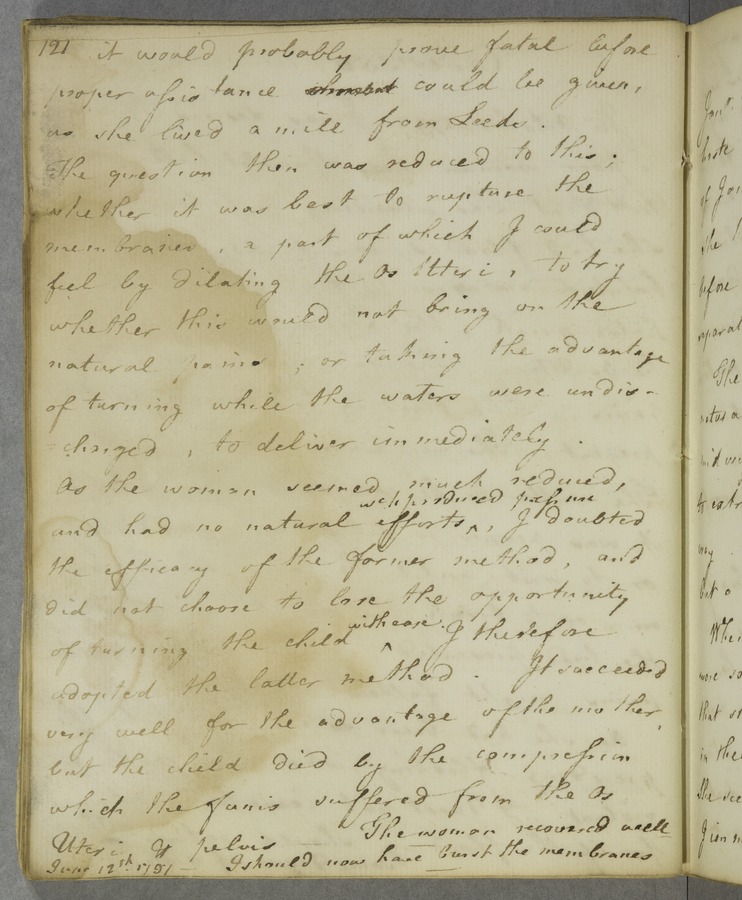 121 it would probably prove fatal before
proper assistance could be given,
as she lived a mile from Leeds.
The question then was reduced to this;
whether it was best to rupture the
membranes, a part of which I could
feel by dilating the Os Uteri, to try
whether this would not bring on the
natural pains; or taking the advantage
of turning while the waters were undis-
-charged, to deliver immediately.
As the woman seemed much reduced,
wch produced pressure
and had no natural efforts ^, I doubted
the efficacy of the former method, and
did not choose to lose the opportunity
of turning the child ^ with ease. I therefore
adopted the latter method. It succeeded
very well for the advantage of the mother,
but the child died by the compression
which the funis suffered from the Os
Uteri & pelvis — The woman recovered well
June 12th. 1791 — I should now have burst the membranes
Jan
of
The
before
The
but a
that
in the